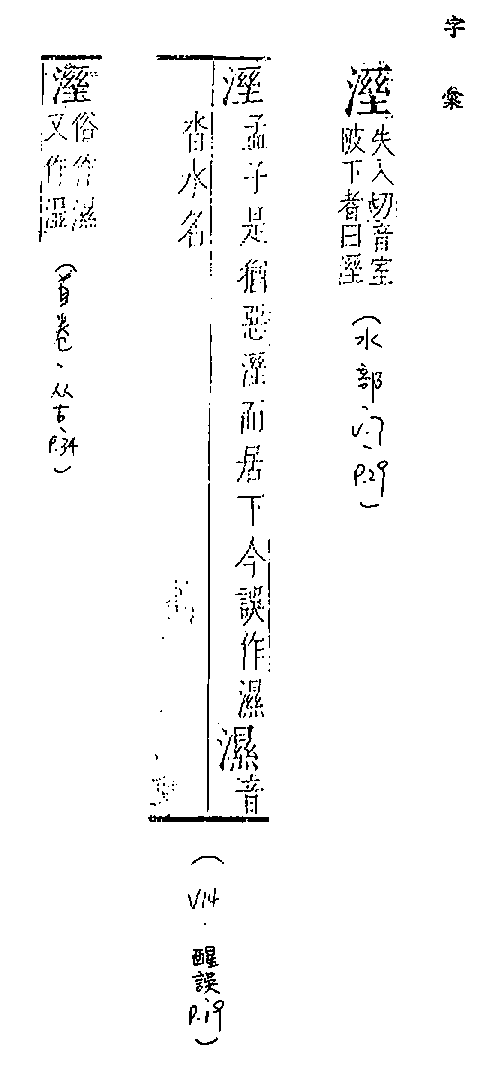 字彙
溼
失入切音室
陂下者曰溼
(水部、V.7、P.29)
溼孟子是猶惡溼而居下今誤作濕濕音
沓水名
(V14.醒誤P.19)
溼
俗作濕
又作湿
(首卷、从古、P.34)